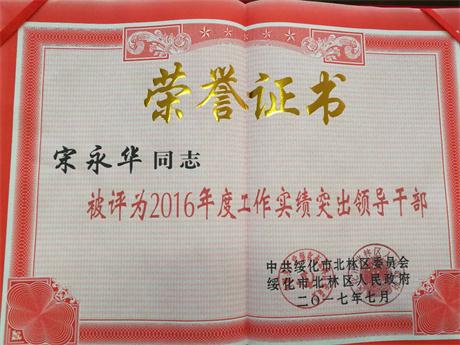 荣誉证书
宋永华同志
被评为2016年度工作实绩突出领导干部
中共绥化市北林区委员会
绥化市北林区人民政府
二〇一七年七月